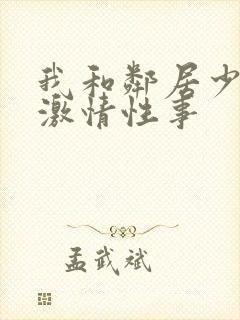 我和鄰居少
激情性事
孟武斌